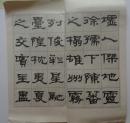 人傑地靈
徐孺下陳蕃
之榻雄州霧
列俊彩星馳
臺隍枕夷夏
之交賓主盡